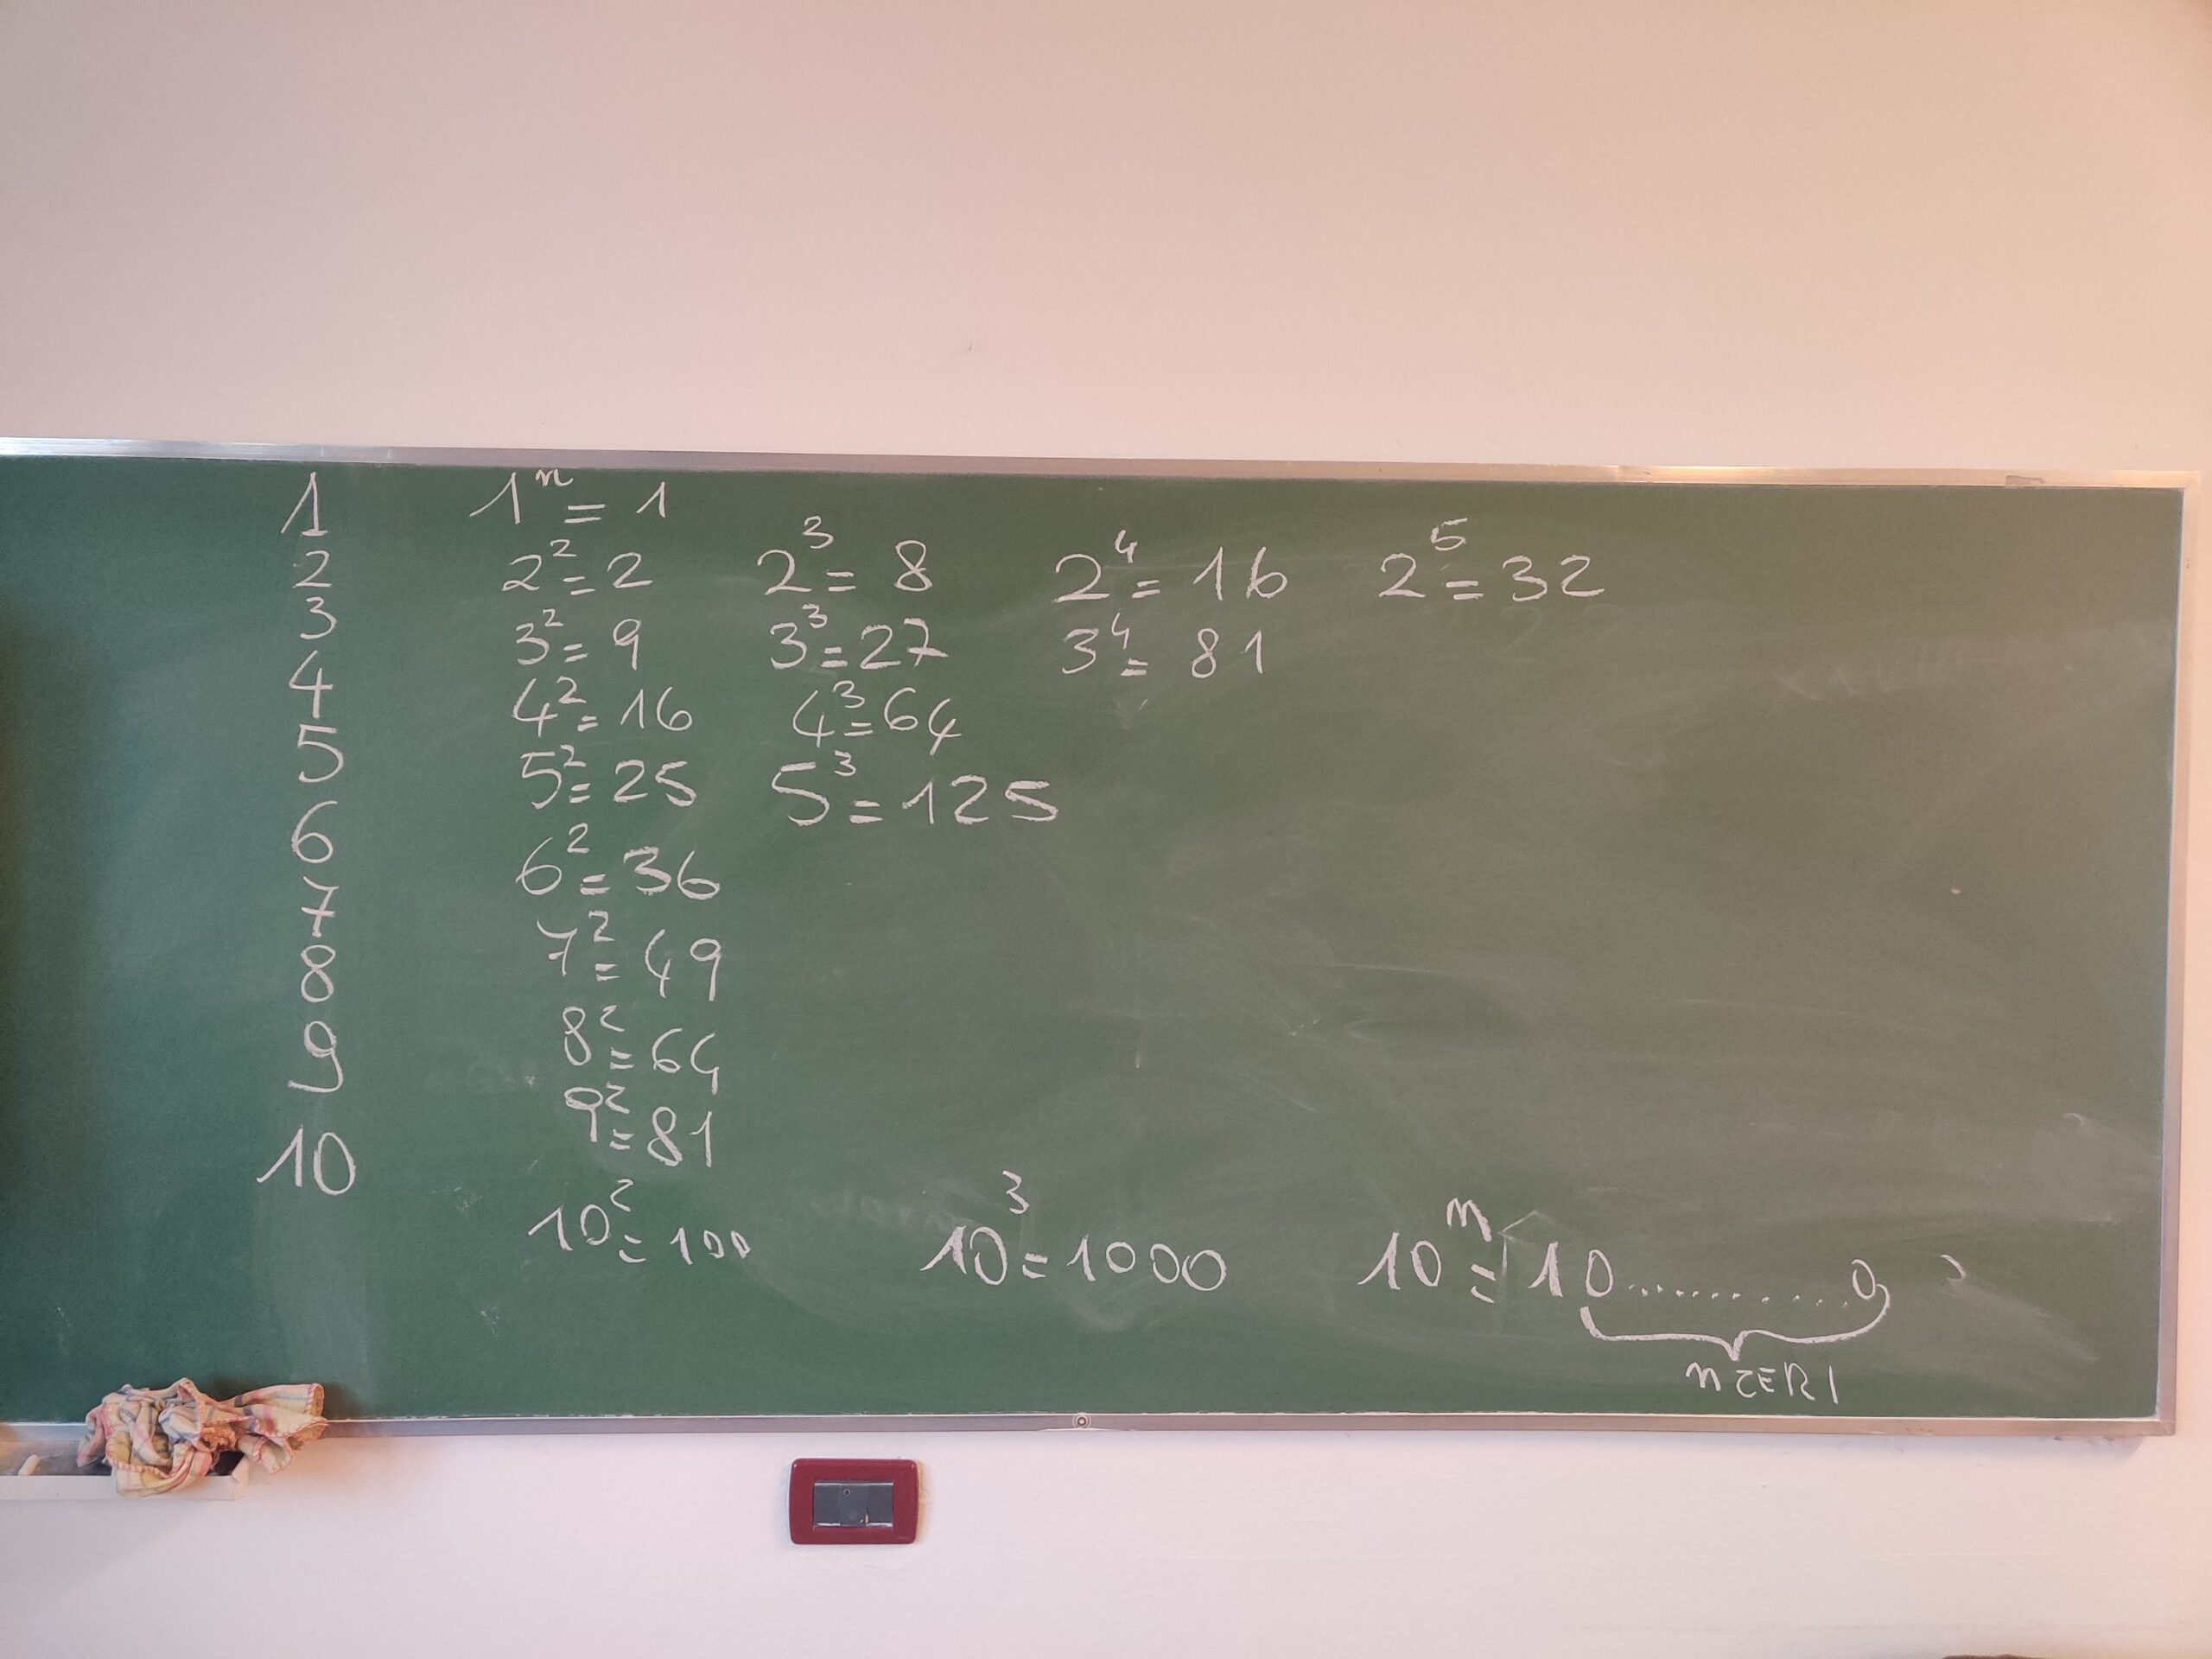 1 1ⁿ = 1
2 2² = 2 2³ = 8 2⁴ = 16 2⁵ = 32
3 3² = 9 3³ = 27 3⁴ = 81
4 4² = 16 4³ = 64
5 5² = 25 5³ = 125
6 6² = 36
7 7² = 49
8 8² = 64
9 9² = 81
10 10² = 100 10³ = 1000 10ⁿ = 10...........0
n ZERI